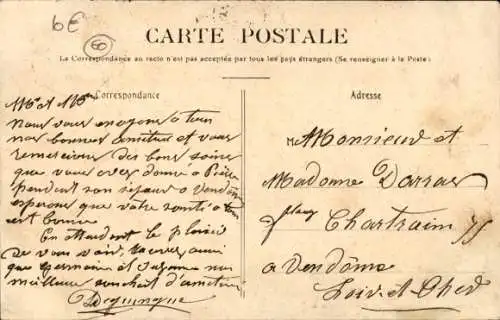 6€
60
CARTE POSTALE
La Correspondance au recto n'est pas acceptée par tous les pays étrangers (Se renseigner à la Poste)
Correspondance
Adresse
Mr et Me
nous vous envoyons a tous
nos bonnes amities et vous
remercions des bons soins
que vous avez donné a
pendent son sejour a Vendôme
esperons que votre santé a tous
est bonne
En attendent le plaisir
de vous voir, recevez aussi
que Germaine et Suzanne nos
meilleurs souhait d'amitié
Monsieur et
Madame Darras
place Chartrain 75
a Vendôme
Loir-et-Cher